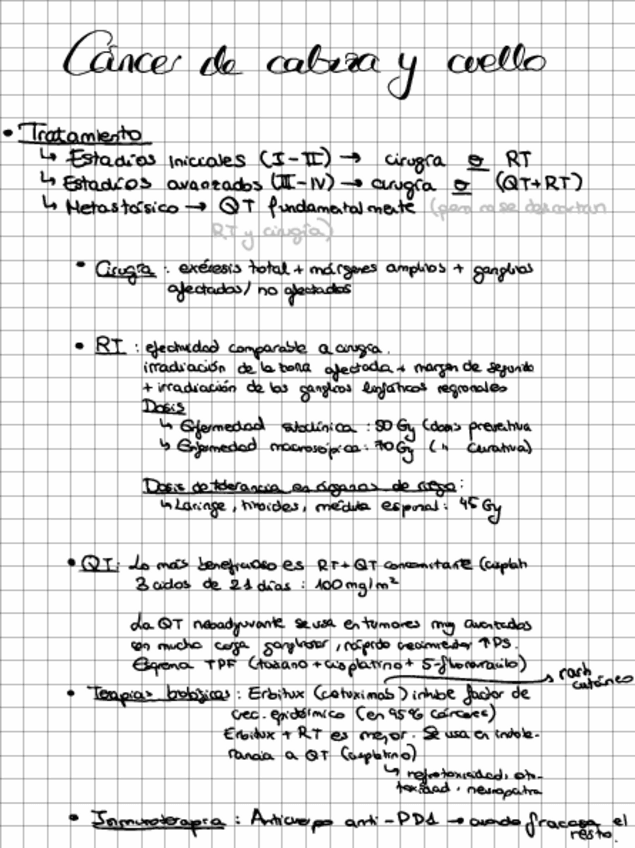 Cáncer de cabeza y cuello
• Tratamiento
↳ Estadios iniciales (I-II) → cirugía o RT
↳ Estadios avanzados (III-IV) → cirugía o (QT+RT)
↳ Metastásico → QT fundamentalmente (pero no se descartan
RT y cirugía)
• Cirugía : exéresis total + márgenes amplios + ganglios
afectados/ no afectados
• RT : efectividad comparable a cirugía.
irradiación de la zona afectada + margen de segurido
+ irradiación de los ganglios linfáticos regionales
Dosis
↳ Enfermedad subclínica : 50 Gy (dosis preventiva
↳ Enfermedad macroscópica : 70 Gy ( " curativa)
Dosis de tolerancia en órganos de riesgo :
↳ Laringe, tiroides, médula espinal : 45 Gy
• QT : Lo más beneficioso es RT + QT concomitante (cisplati
3 ciclos de 21 días : 100 mg/m²
La QT neoadyuvante se usa en tumores muy avanzados
con mucha carga ganglionar, rápido crecimiento ↑PS.
Esquema TPF (taxano + cisplatino + 5-fluoruracilo)
• Terapias biológicas : Erbitux (cetuximab) inhibe factor de → rash cutáneo
crec. epidérmico (en 95% cánceres)
Erbitux + RT es mejor. Se usa en intole-
rancia a QT (cisplatino)
↳ nefrotoxicidad, oto-
toxicidad, neuropatía
• Inmunoterapia : Anticuerpo anti-PD1 → cuando fracasa el
resto.